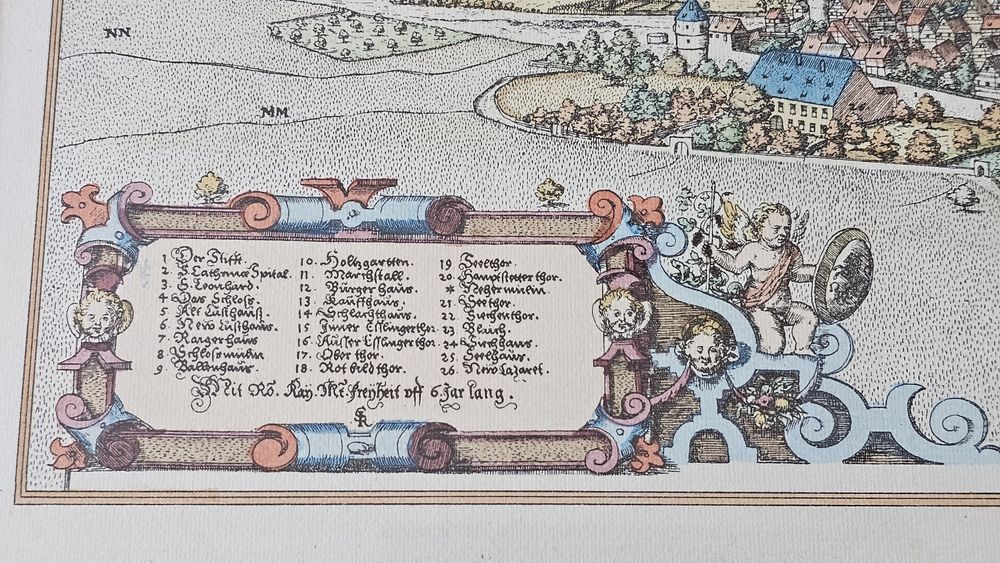 NN
MM
1 Der Stifft.
2. S Catharina Spital.
3. S. Leonhard.
4 Das Schloss.
5. Alt Lusthauß.
6. New Lusthaus.
7. Raigerhaus
8. Schlossmulin
9. Ballenhaus.
10. Holtzgartten.
11. Marchstall.
12. Burgerhaus.
13. Kauffhaus.
14. Schlachthaus.
15. Inner Esslingerthor.
16. Ausser Esslingerthor.
17. Ober thor.
18. Rotbildthor.
19 Seelthor.
20. Hauptstetter thor.
* Nechermulin.
21. Seethor.
22. Siechenthor.
23. Blaich.
24 Siechhaus.
25. Seelhaus.
26. New Lazaret.
Mit Rö. Kay. Mt. freyheit uff 6. Jar lang.